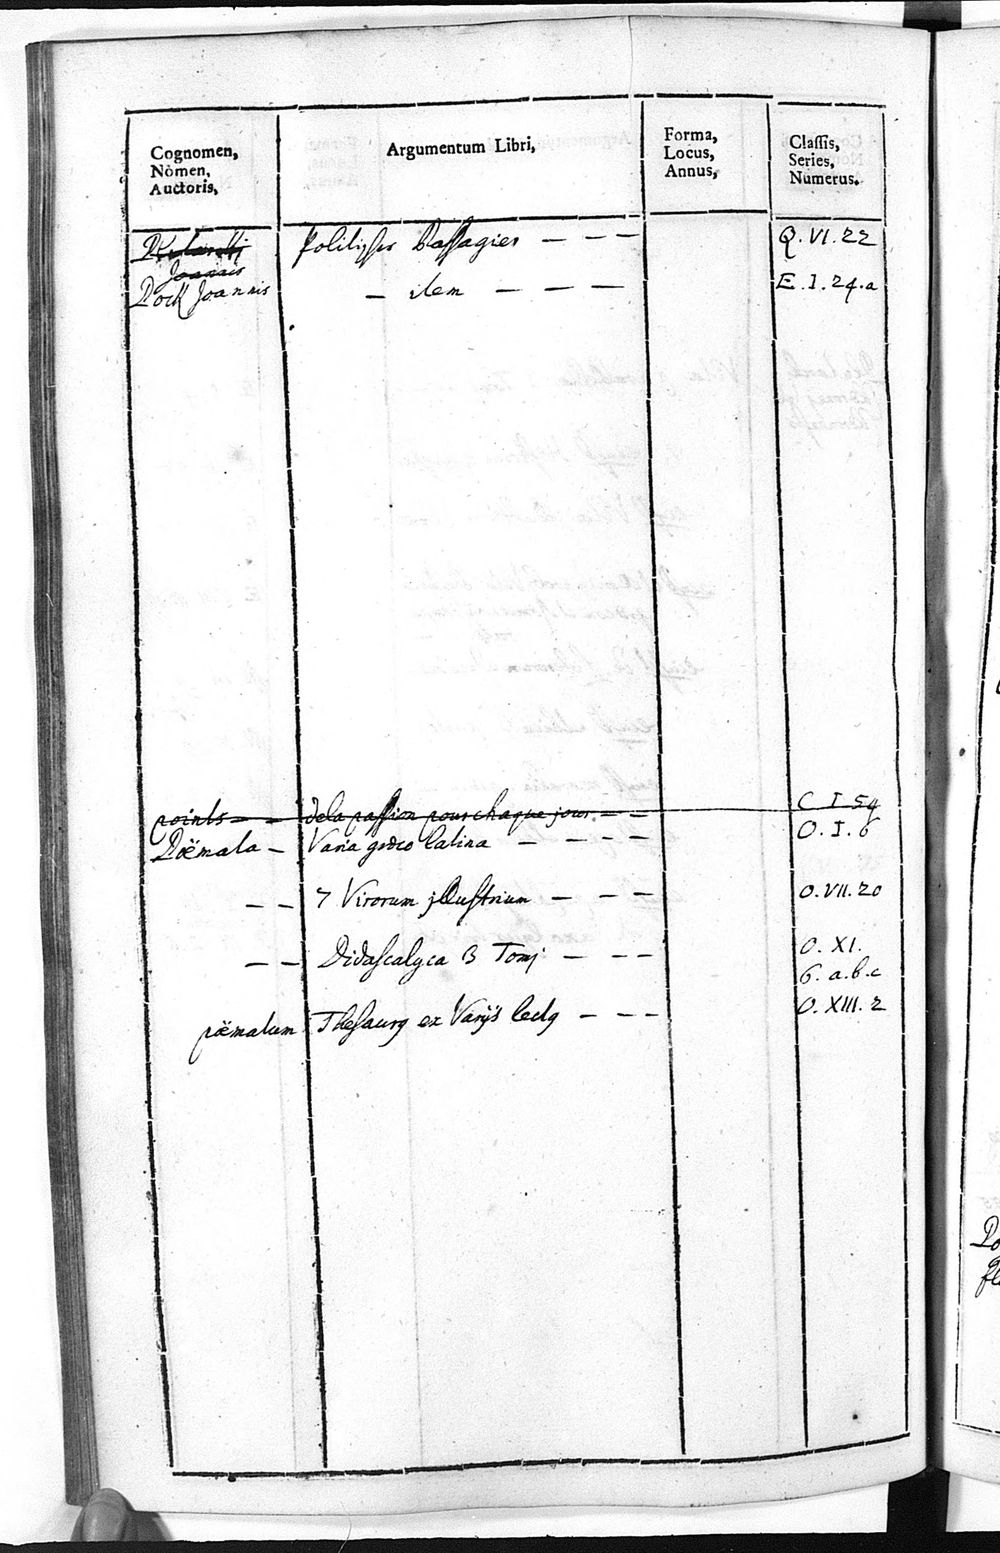 Cognomen,
Nòmen,
Auctoris,
Argumentum Libri,
Forma,
Locus,
Annus,
Classis,
Series,
Numerus.
Politischer Passagier — — — Q. VI. 22
Joannis
Pock Joannis — item — — — E. I. 24. a
points — — de la passion pour chaque jour. — — C I 54
Poëmata — Varia græco latina — — — — O. I. 6
— — 7 Virorum jllustrium — — — O. VII. 20
— — Didascalyca 3 Tomj — — — O. XI.
6. a. b. c
poëmatum Thesaurg ex Varijs lectg — — — O. XIII. 2